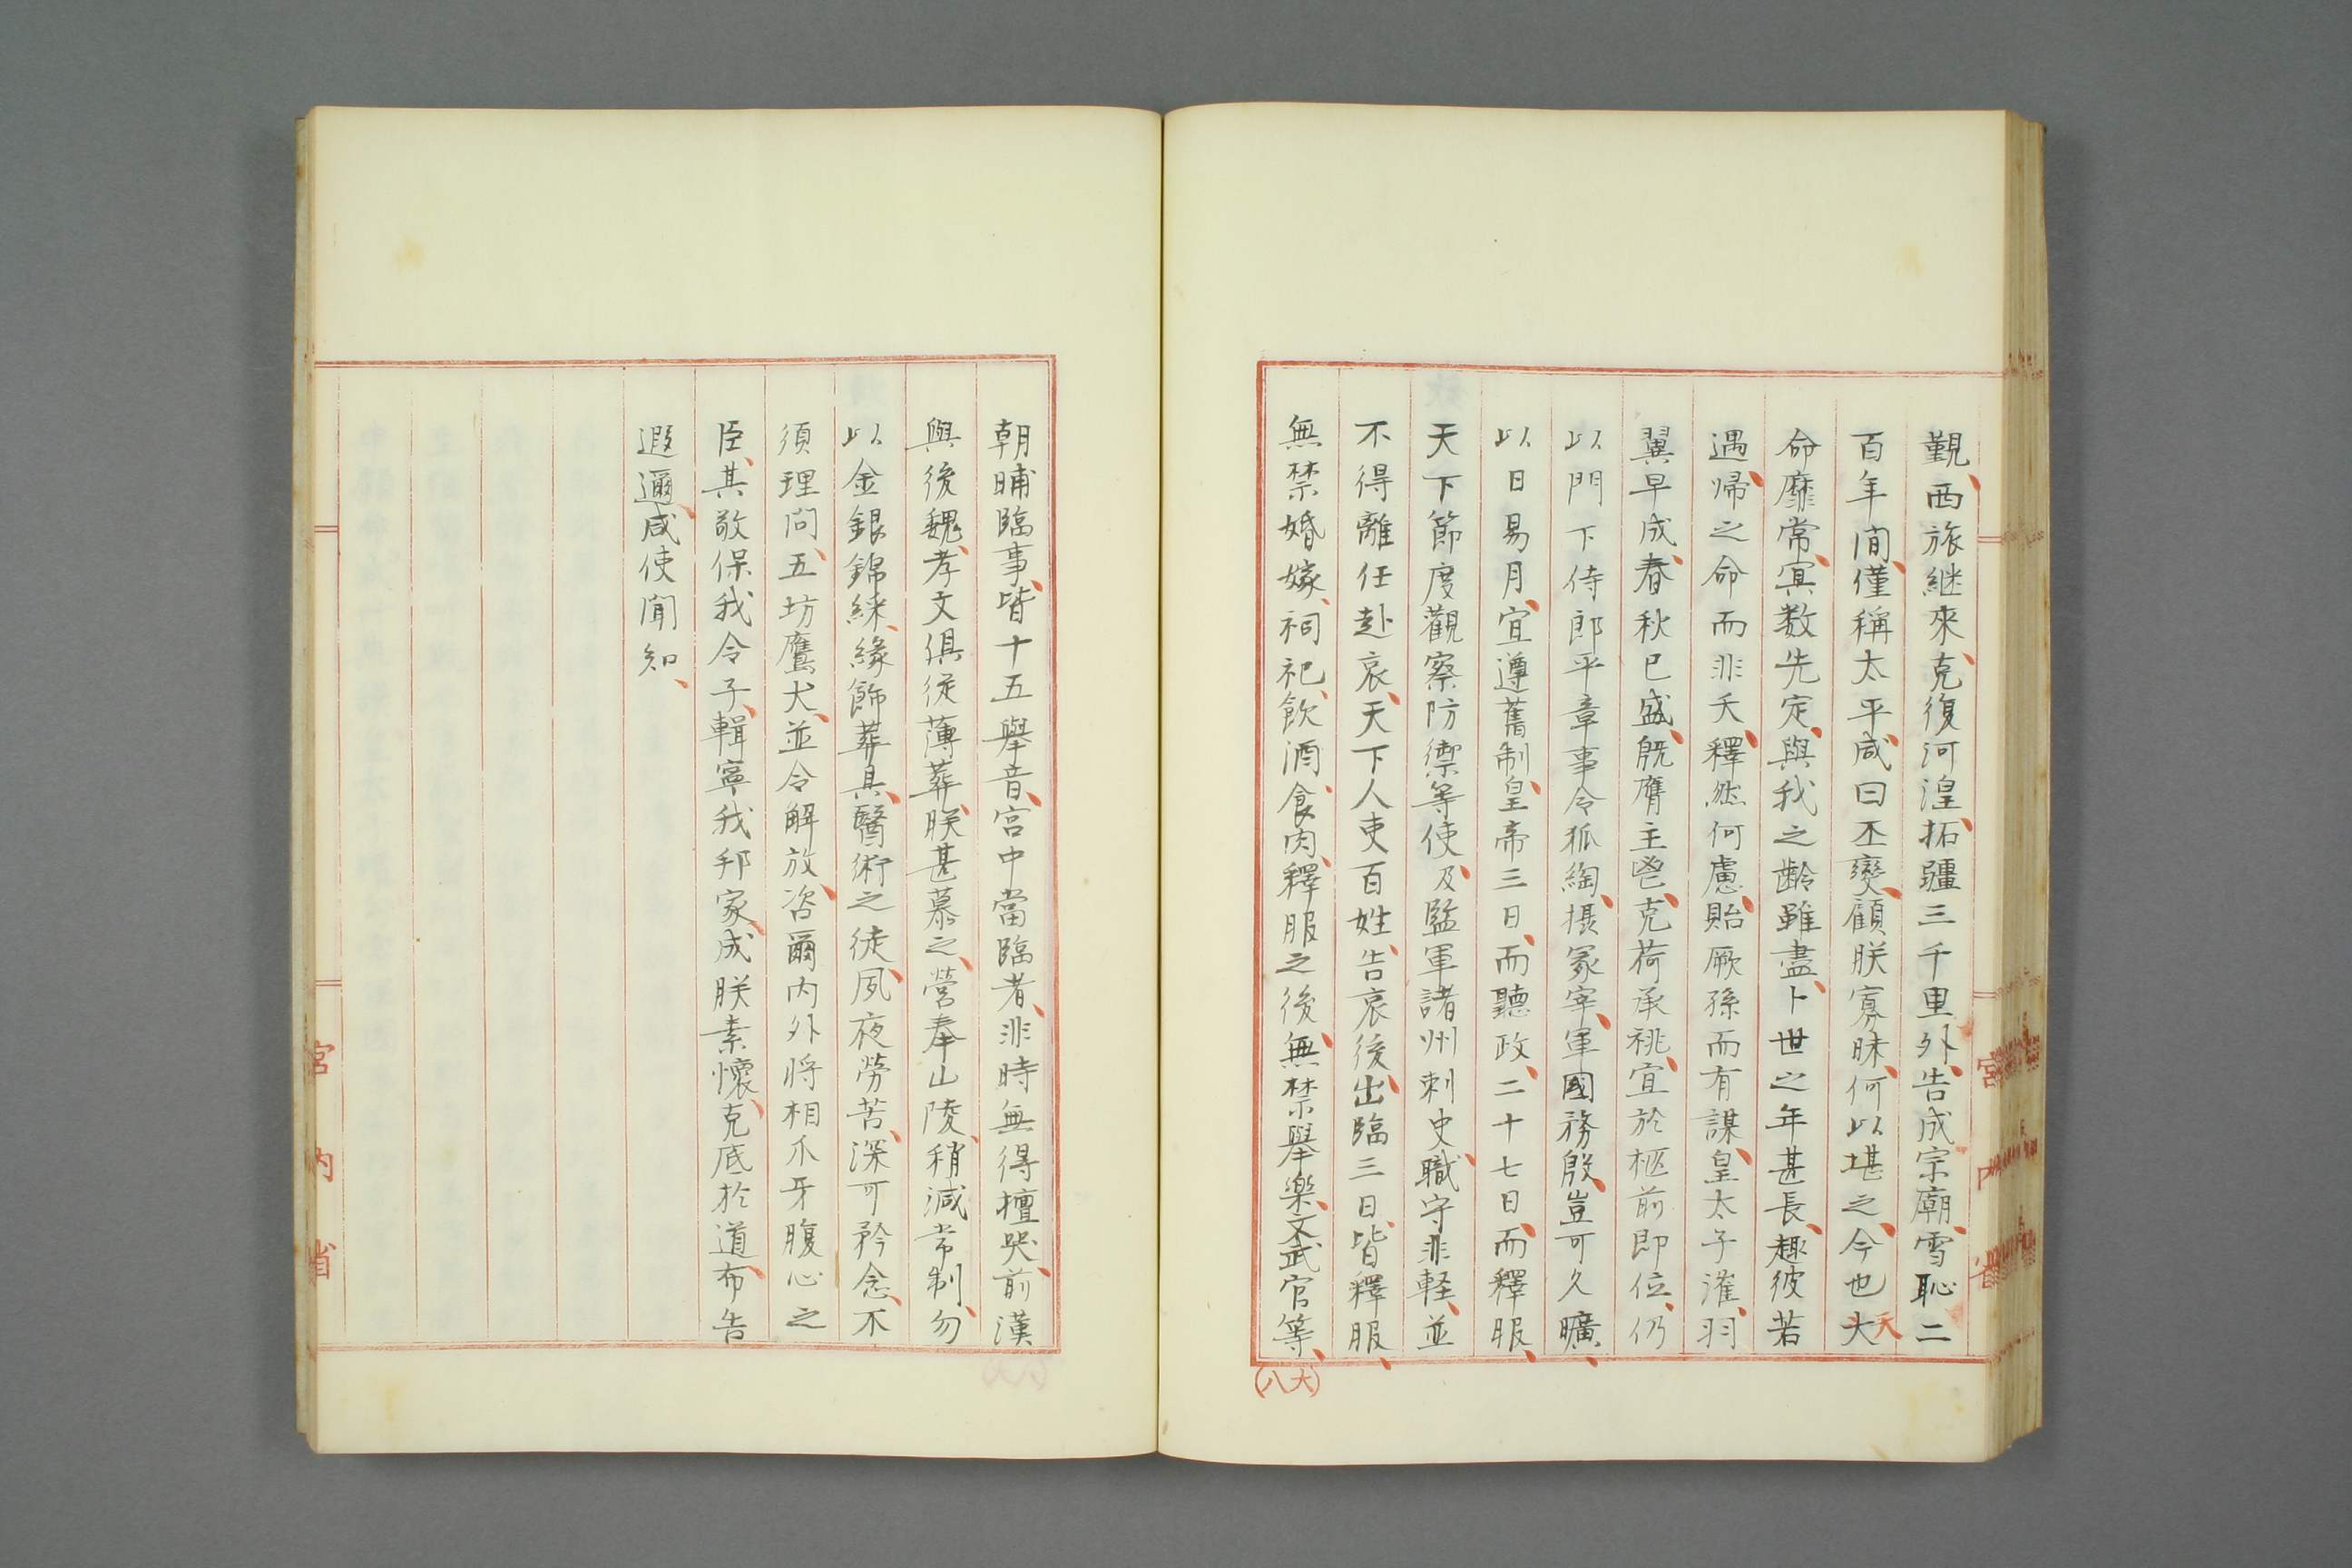 覲、西旅継來、克復河湟、拓疆三千里外、告成宗廟、雪恥二
百年間、僅稱太平、咸曰丕變、顧朕寡昧、何以堪之、今也大
天
命靡常、冥数先定、與我之齡雖盡、卜世之年甚長、趣彼若
遇、歸之命而非夭、釋然何慮、貽厥孫而有謀、皇太子漼、羽
翼早成、春秋已盛、既膺主鬯、克荷承祧、宜於柩前即位、仍
以門下侍郎平章事令狐綯、摂冢宰、軍國務殷、豈可久曠、
以日易月、宜遵舊制、皇帝三日、而聽政、二十七日、而釋服、
天下節度觀察防禦等使、及監軍諸州刺史、職守非軽、並
不得離任赴哀、天下人吏百姓、告哀後、出臨三日、皆釋服、
無禁婚嫁、祠祀、飲酒、食肉、釋服之後、無禁擧樂、文武官等、
(大八)
朝晡臨事、皆十五擧音、宮中當臨者、非時無得擅哭、前漢
與後魏、孝文俱從薄葬、朕甚慕之、營奉山陵、稍減常制、勿
以金銀錦綵、緣飾葬具、醫術之徒、夙夜勞苦、深可矜念、不
須理問、五坊鷹犬、並令解放、咨爾内外将相爪牙腹心之
臣、其敬保我令子、輯寧我邦家、成朕素懷、克底於道、布告
遐邇、咸使聞知、
宮内省
宮内省